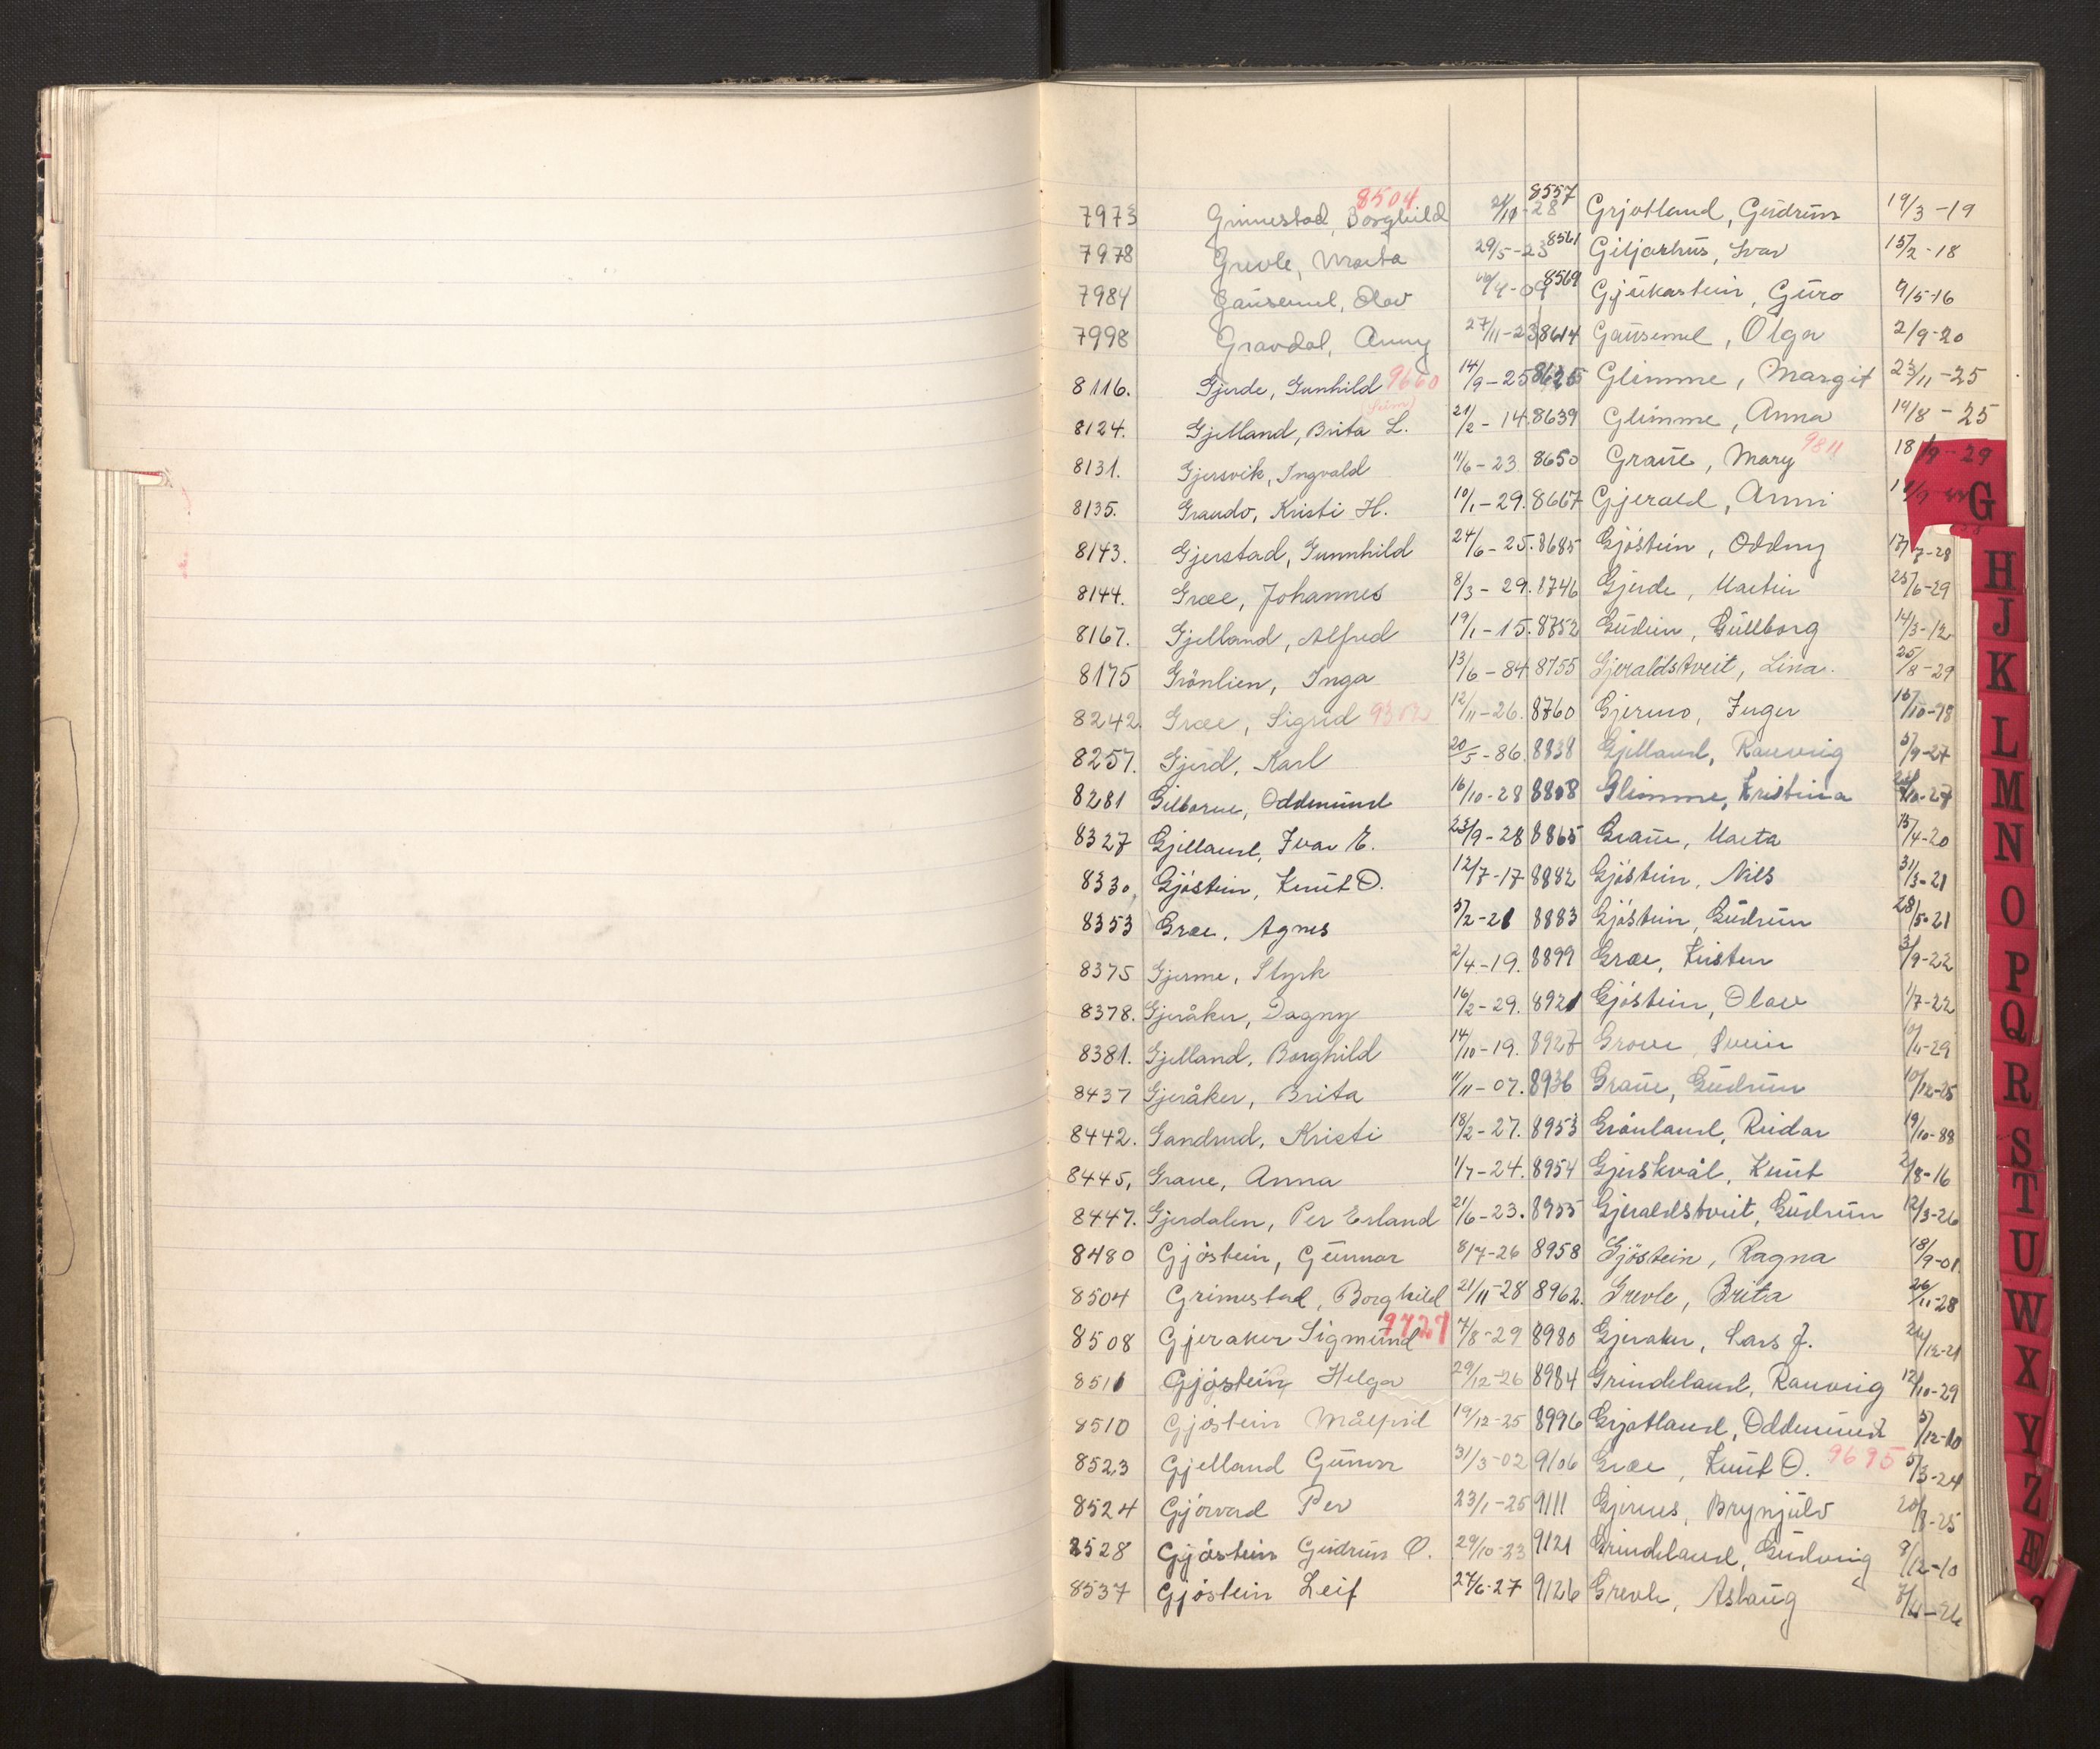 8504
7973 Grimestad, Borghild 21/11-28 8557 Grjotland, Gudrun 19/3-19
7978 Grevle, Marta 29/5-23 8561 Giljarhus, Ivar 15/2-18
7984 Gausemel, Olav /4-09 8569 Gjukastein, Guro 9/5-16
7998 Gravdal, Anny 27/11-23 8614 Gausemel, Olga 2/9-20
8116. Gjerde, Gunhild 9660 14/9-25 8625 Glimme, Margit 23/11-25
8124. Gjelland, Brita L. 21/2-14. 8639 Glimme, Anna 19/8-25
8131. Gjersvik, Ingvald 11/6-23 8650 Graue, Mary 9811 18/9-29
8135. Graudo, Kristi H. 10/1-29. 8667 Gjerald, Anni
8143. Gjerstad, Gunnhild 24/6-25. 8685 Gjóstein, Oddny 17/7-28
8144. Græe, Johannes 8/3-29. 8746 Gjerde, Martin 25/6-29
8167. Gjelland, Alfred 19/1-15. 8752 Gudein, Gullborg 14/3-12
8175 Grönlien, Inga 13/6-84 8755 Gjeraldstveit, Lina. 25/8-29
8242. Græe, Sigrid 12/11-26. 8760 Gjermo, Inger /10-98
8257. Gjerd, Karl 20/5-86. 8838 Gjelland, Rannveig 5/9-27
8281 Gilborne, Oddmund 16/10-28 8808 Glimme, Kristina /10-27
8327 Gjelland, Ivar E. 23/9-28 8865 Graue, Marta 15/4-20
8330, Gjóstein, Knut O. 12/7-17 8882 Gjóstein, Nils 31/3-21
8353 Græe, Agnes 5/2-21 8883 Gjóstein, Gudrun 28/5-21
8375 Gjerme, Styrk 2/4-19. 8899 Græe, Kristen 3/9-22
8378. Gjeråker, Dagny 16/2-29. 8921 Gjóstein, Olav 1/7-22
8381. Gjelland, Borghild 14/10-19. 8927 Grove, Svein -29
8437 Gjeråker, Brita 11/11-07. 8936 Graue, Gudrun 10/12-25
8442. Gandrud, Kristi 18/2-27. 8953 Grónland, Reidar 19/10-88
8445, Graue, Anna 1/7-24. 8954 Gjerskvål, Knut 2/8-16
8447. Gjerdalen, Per Erland 21/6-23. 8955 Gjeraldstveit, Gudrun 12/3-26
8480 Gjóstein, Gunnar 8/7-26 8958 Gjöstein, Ragna 18/9-01
8504 Grimestad, Borghild 21/11-28 8962. Grevle, Brita 26/11-28
8508 Gjeraker Sigmund 9727 7/8-29 8980 Gjeraker, Lars J. /12-21
8511 Gjóstein, Helga 29/12-26 8984 Grindeland, Rannveig 12/10-29
8510 Gjóstein Målfrid 19/12-25 8996 Grjotland, Oddmund 5/12-10
8523 Gjelland Gunnar 31/3-02 9106 Græe, Knut O. 9695 5/3-24
8524 Gjórvad Per 23/1-25 9111 Gjernes, Brynjulv 20/8-25
8528 Gjóstein Gudrun O. 29/10-23 9121 Grindeland, Gudveig 9/12-10
8537 Gjóstein Leif 27/6-27 9126 Grevle, Aslaug -26
G
H
J
K
L
M
N
O
P
Q
R
S
T
U
W
X
Y
Z
Æ